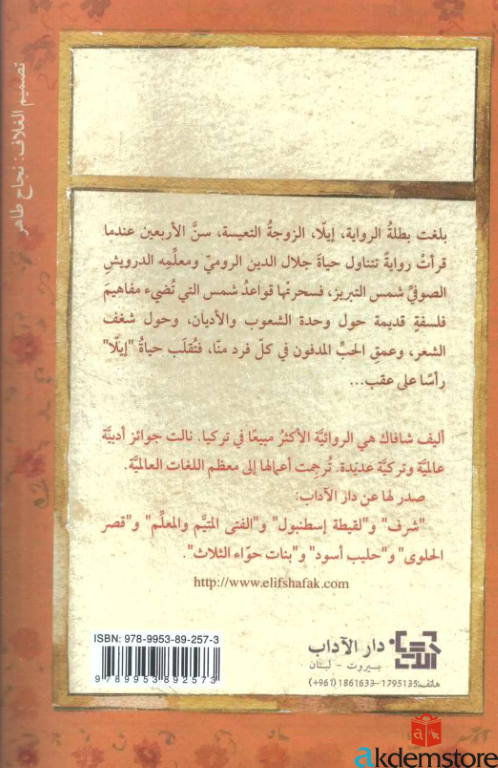 تصميم الغلاف: نجاح طاهر
بلغت بطلةُ الرواية، إيلّا، الزوجةُ التعيسة، سنَّ الأربعين عندما
قرأتْ روايةً تتناول حياةَ جلال الدين الروميّ ومعلِّمه الدرويشِ
الصوفيِّ شمس التبريز، فسحرتْها قواعدُ شمس التي تُضيء مفاهيمَ
فلسفةٍ قديمة حول وحدة الشعوب والأديان، وحول شغف
الشعر، وعمقِ الحبِّ المدفون في كلّ فرد منّا، فتُقلَب حياةُ "إيلّا"
رأسًا على عقب...
أليف شافاك هي الروائيَّة الأكثرُ مبيعًا في تركيا. نالت جوائز أدبيَّة
عالميَّة وتركيَّة عديدة. تُرجمت أعمالها إلى معظم اللغات العالميَّة.
صدر لها عن دار الآداب:
"شرف" و"لقيطة إسطنبول" و"الفتى المتيَّم والمعلّم" و"قصر
الحلوى" و"حليب أسود" و"بنات حوّاء الثلاث".
http://www.elifshafak.com
ISBN: 978-9953-89-257-3
9789953892573
دار الآداب
بيروت - لبنان
هاتف: 1795135-1861633 (961+)
akdemstore